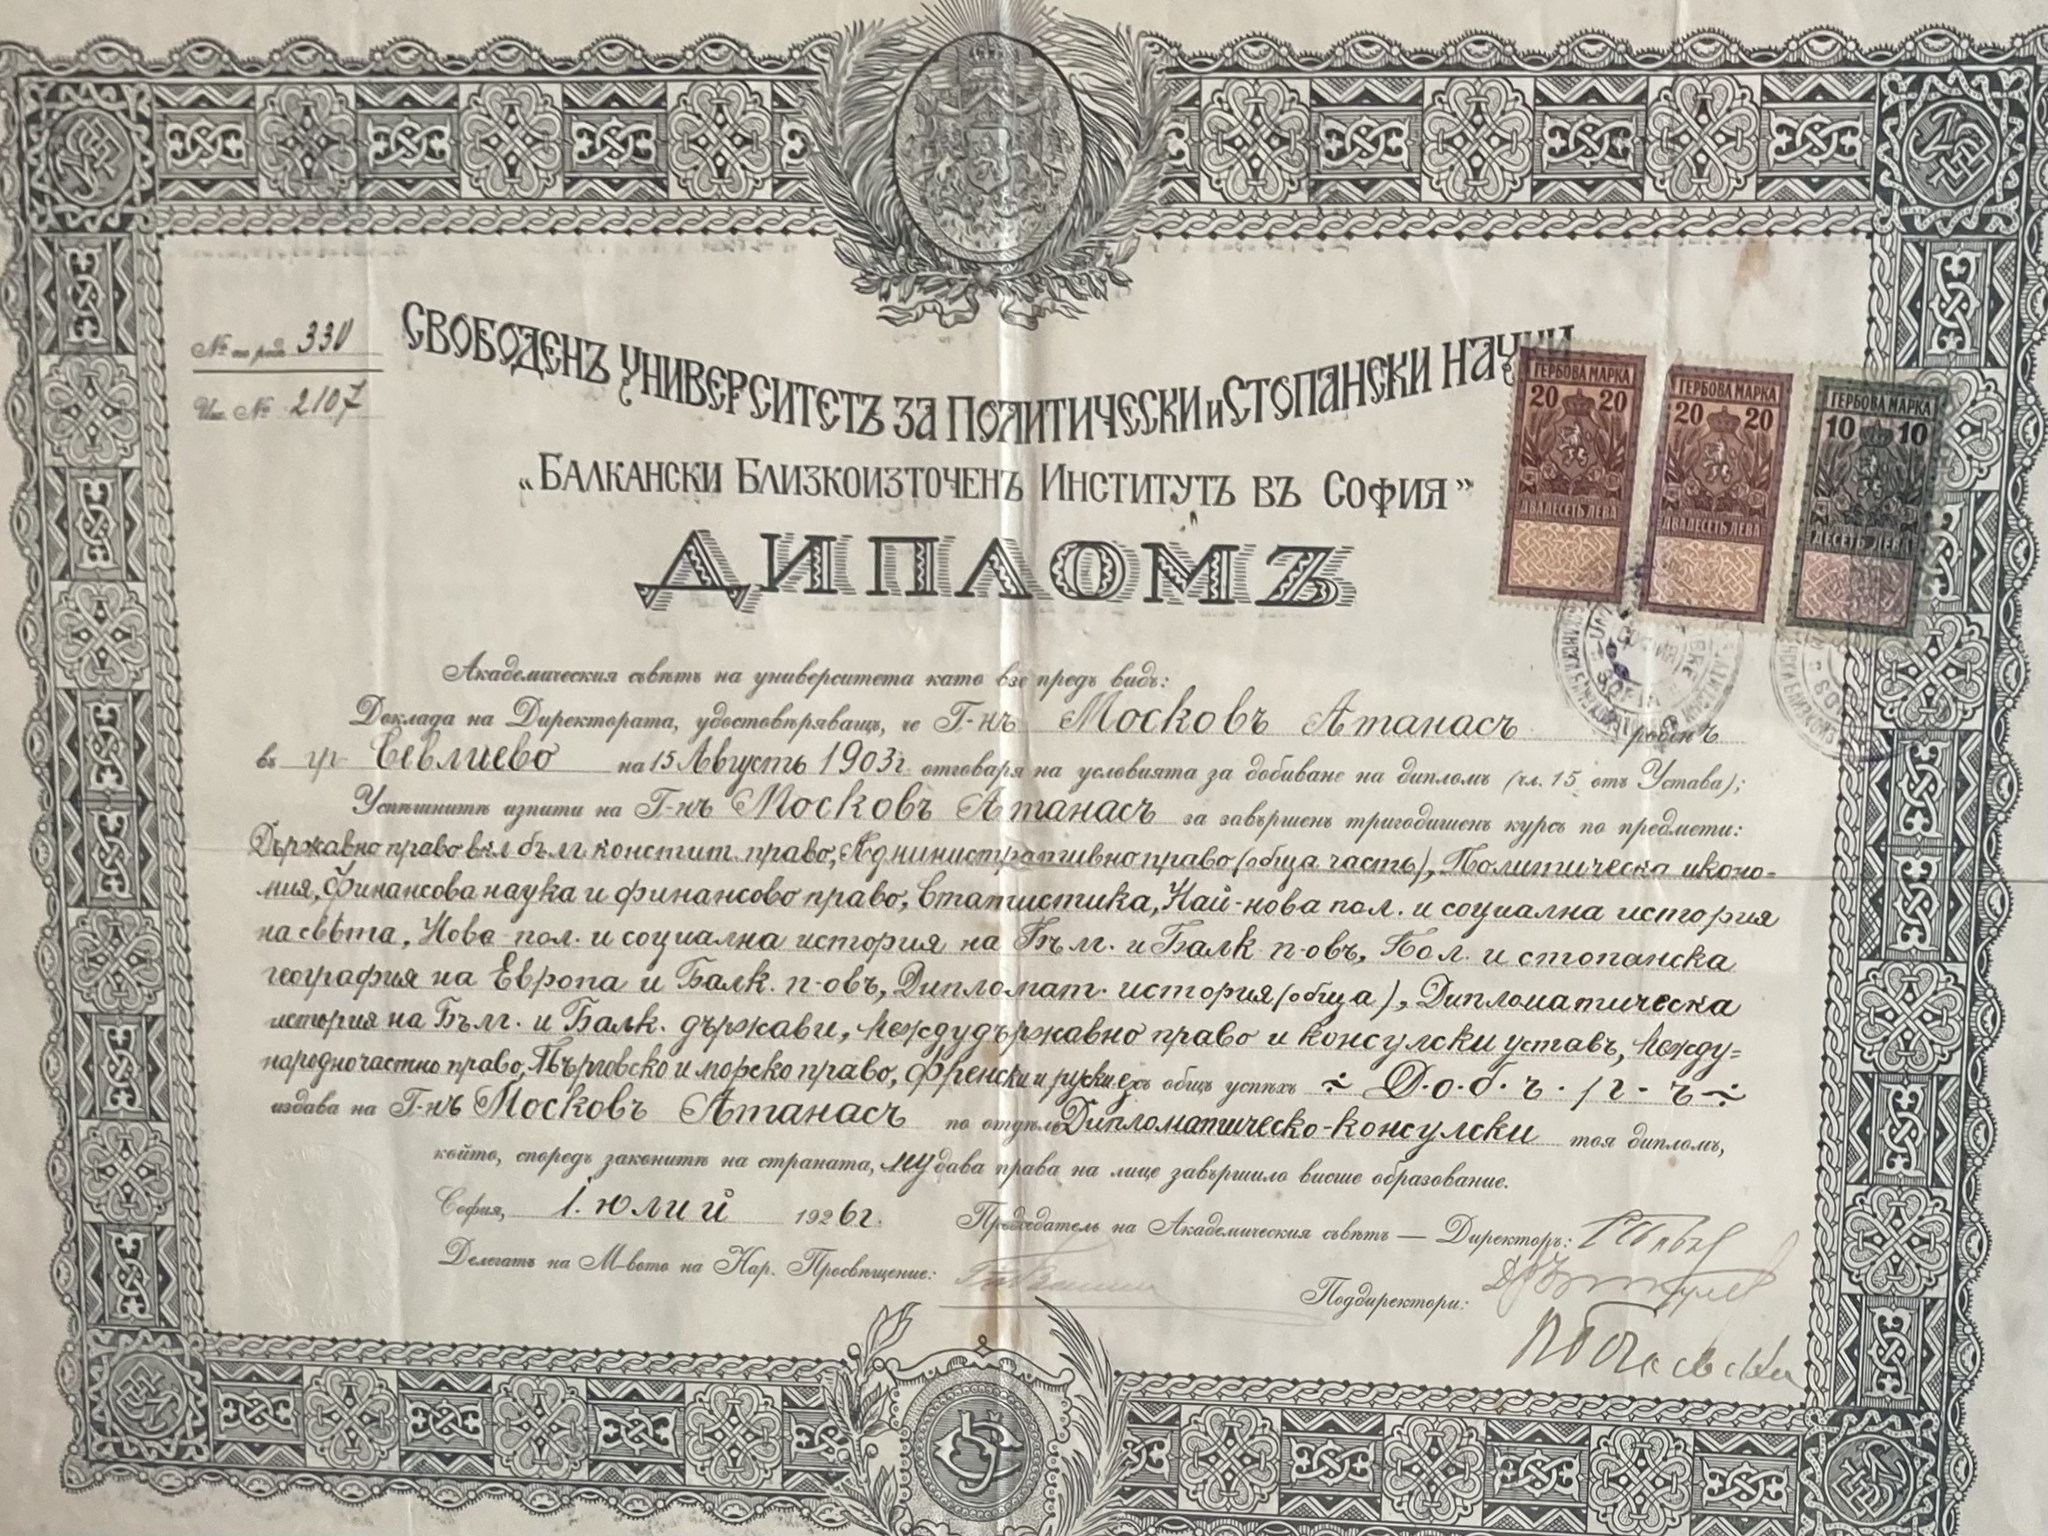 № по редъ 330
Инв. № 2107
СВОБОДЕНЪ УНИВЕРСИТЕТЪ ЗА ПОЛИТИЧЕСКИ и СТОПАНСКИ НАУКИ
„БАЛКАНСКИ БЛИЗКОИЗТОЧЕНЪ ИНСТИТУТЪ ВЪ СОФИЯ”
ДИПЛОМЪ
ГЕРБОВА МАРКА
20 20
ДВАДЕСЕТЬ ЛЕВА
ГЕРБОВА МАРКА
20 20
ДВАДЕСЕТЬ ЛЕВА
ГЕРБОВА МАРКА
10 10
ДЕСЕТЬ ЛЕВА
Академическия съвѣтъ на университета като взе предъ видъ:
Доклада на Директората, удостовѣряващъ, че Г-нъ Московъ Атанасъ роденъ
въ гр. Севлиево на 15 Августъ 1903 г. отговаря на условията за добиване на дипломъ (чл. 15 отъ Устава);
Успѣшнитѣ изпити на Г-нъ Московъ Атанасъ за завършенъ тригодишенъ курсъ по предмети:
Държавно право вкл бълг констит. право, Административно право (обща часть), Политическа иконо-
мия, Финансова наука и финансово право, Статистика, Най-нова пол. и социална история
на свѣта, Нова пол. и социална история на Бълг. и Балк. п-овъ, Пол. и стопанска
география на Европа и Балк. п-овъ, Дипломат. история (обща), Дипломатическа
история на Бълг. и Балк. държави, Междудържавно право и консулски уставъ, Между=
народно частно право, Търговско и морско право, Френски и руски ез. съ общъ успѣхъ ÷ Д.о.б.ъ.р.ъ ÷
издава на Г-нъ Московъ Атанасъ по отдѣлъ Дипломатическо-консулски тоя дипломъ,
който, споредъ законитѣ на страната, му дава права на лице завършило висше образование.
София, 1. юлий 1926 г.
Председатель на Академическия съвѣтъ — Директоръ:
Делегатъ на М-вото на Нар. Просвѣщение:
Поддиректори: